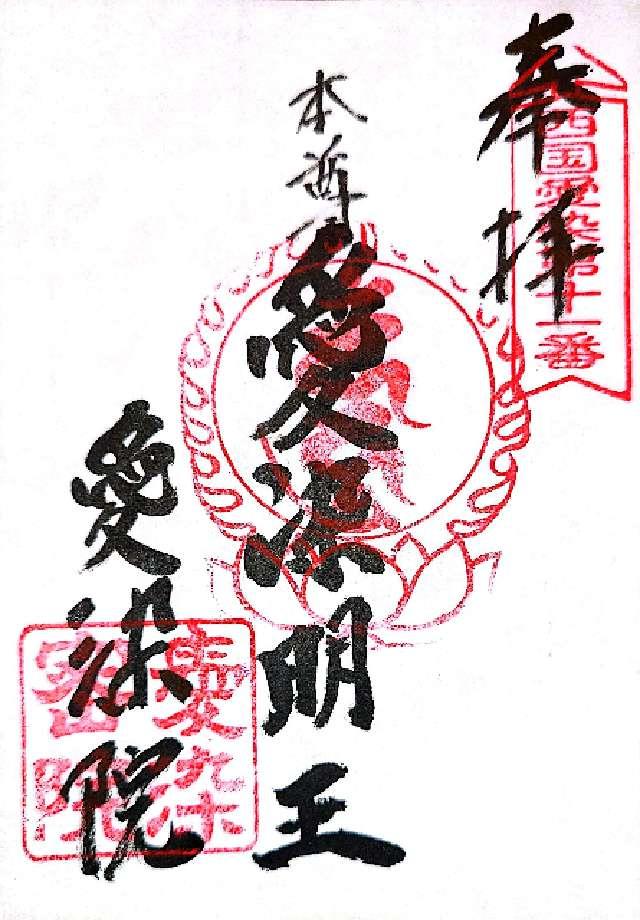 奉拝
西国愛染第十一番
本尊
愛染明王
愛染院